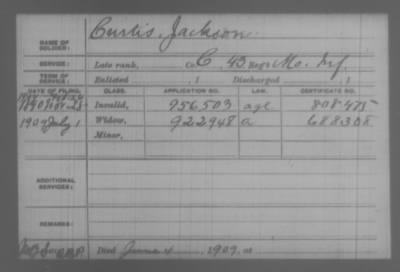 NAME OF SOLDIER: Curtis, Jackson
SERVICE: Late rank, Co. C, 43 Reg't Mo. Inf
TERM OF SERVICE: Enlisted , 1 Discharged , 1
DATE OF FILING. CLASS. APPLICATION NO. LAW. CERTIFICATE NO.
Invalid, 956,503 age 808,475
1909 July 1 Widow, 922948 a 688308
Minor,
ADDITIONAL SERVICES:
REMARKS:
Died June 4, 1909, at